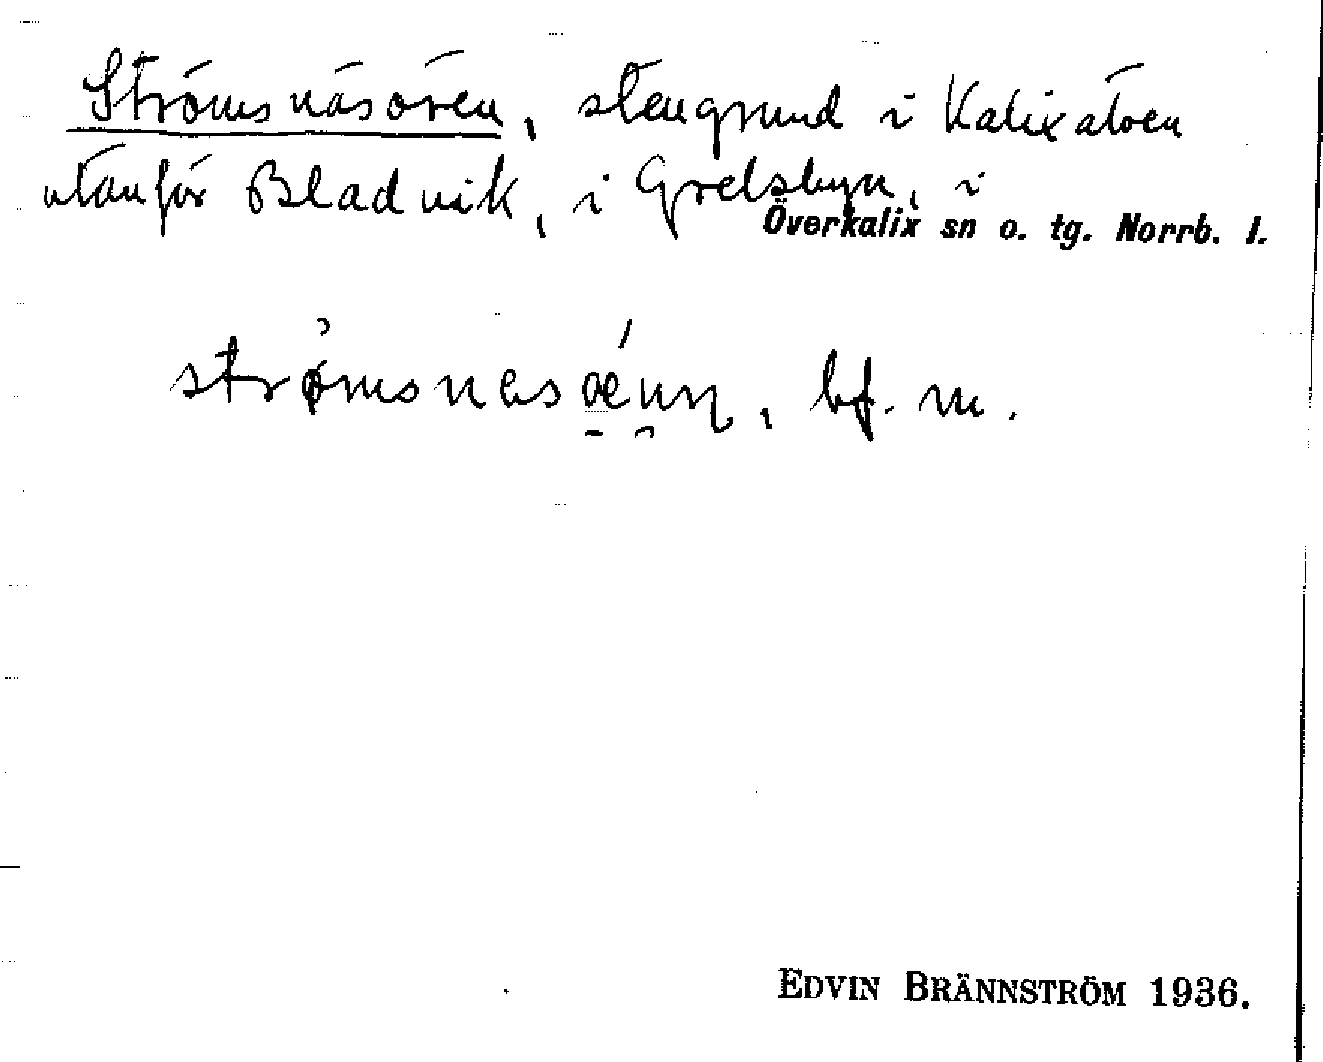 Strömsnäsören, stengrund i Kalixälven
utanför Bladvik, i Grelsbyn, i
Överkalix sn o. tg. Norrb. l.
bf. m.
EDVIN BRÄNNSTRÖM 1936.